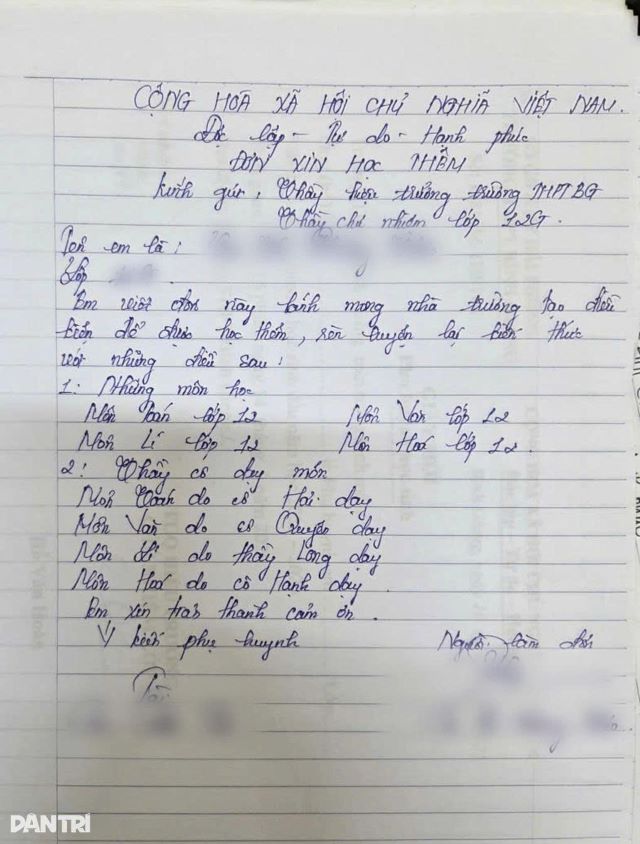 CỘNG HÒA XÃ HỘI CHỦ NGHĨA VIỆT NAM.
Độc lập - Tự do - Hạnh phúc
ĐƠN XIN HỌC THÊM
Kính gửi: Thầy hiệu trưởng trường THPT BG
Thầy chủ nhiệm lớp 12G.
Tên em là:
Lớp
Em viết đơn này kính mong nhà trường tạo điều
kiện để được học thêm, rèn luyện lại kiến thức
với những điều sau:
1: Những môn học
Môn toán lớp 12 Môn Văn lớp 12
Môn Lí lớp 12 Môn Hoá lớp 12.
2: Thầy cô dạy môn
Môn Toán do cô Hải dạy
Môn Văn do cô Quyên dạy
Môn Lí do thầy Long dạy
Môn Hoá do cô Hạnh dạy.
Em xin trân thành cảm ơn.
Ý kiến phụ huynh Người làm đơn
DÂN TRÍ